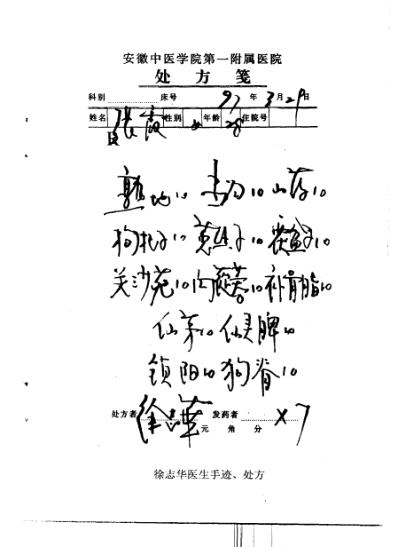 安徽中医学院第一附属医院
处方笺
科别 床号 97年3月29日
姓名 张霞 性别 女 年龄 28 住院号
熟地10 山药10
枸杞子10 菟丝子10
关沙苑10 肉苁蓉10 补骨脂10
仙茅10 仙灵脾10
锁阳10 狗脊10
处方者 徐志华 发药者 ×7
元 角 分
徐志华医生手迹、处方